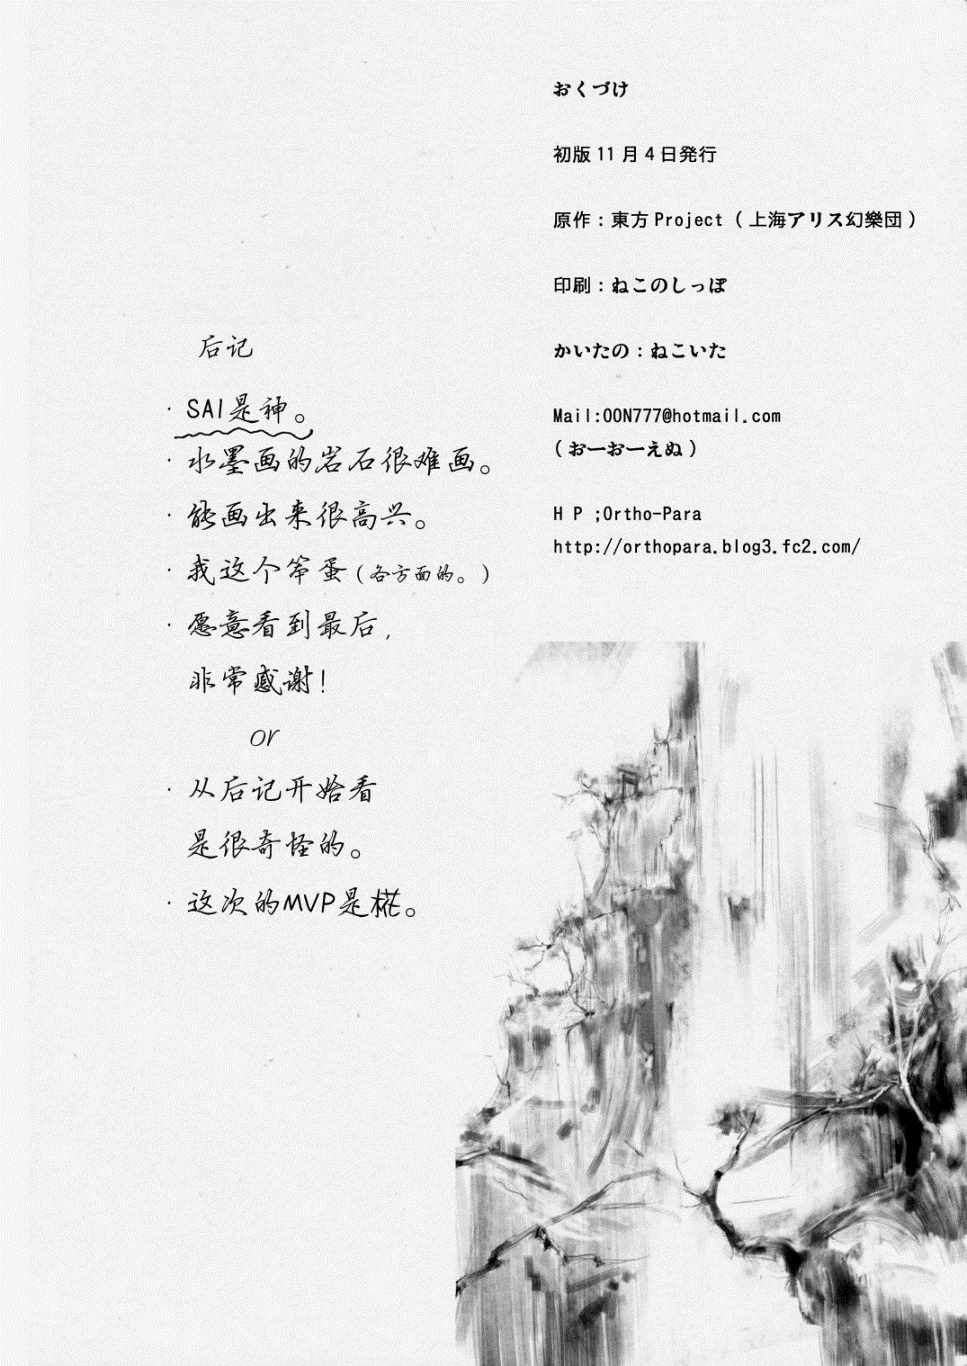 おくづけ
初版 11 月 4 日発行
原作：東方 Project（上海アリス幻樂団）
印刷：ねこのしっぽ
かいたの：ねこいた
Mail:OON777@hotmail.com
（おーおーえぬ）
H P ;Ortho-Para
http://orthopara.blog3.fc2.com/
后记
· SAI是神。
· 水墨画的岩石很难画。
· 能画出来很高兴。
· 我这个笨蛋（各方面的。）
· 愿意看到最后，
非常感谢！
or
· 从后记开始看
是很奇怪的。
· 这次的MVP是椛。